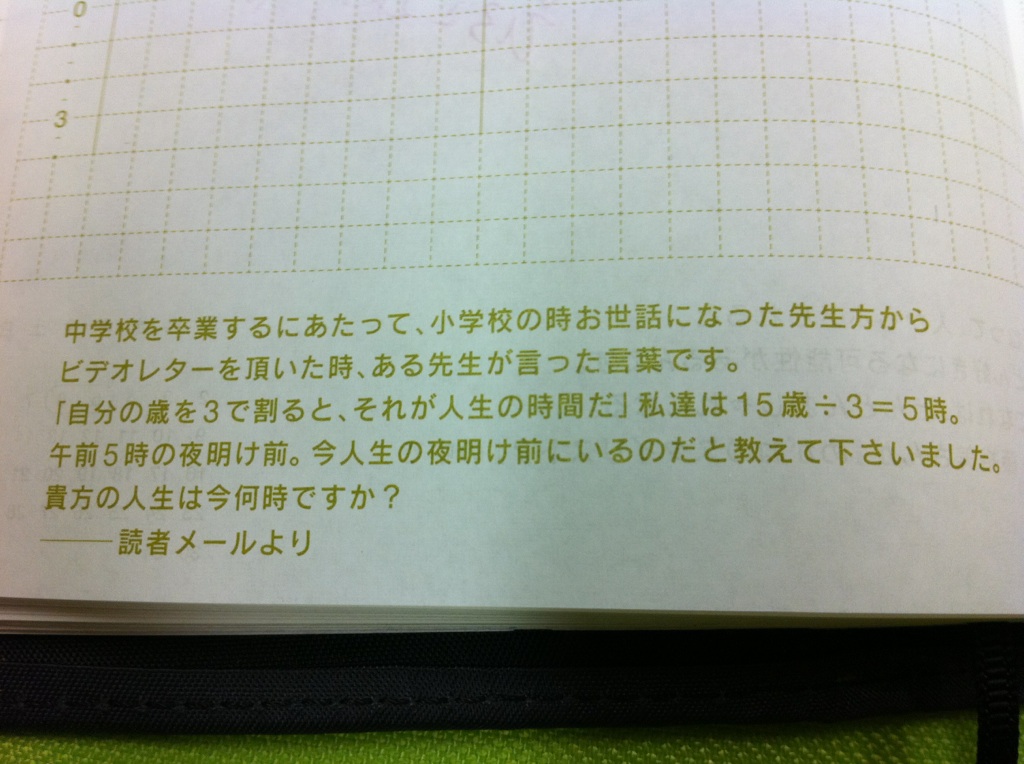 0
3
中学校を卒業するにあたって、小学校の時お世話になった先生方から
ビデオレターを頂いた時、ある先生が言った言葉です。
「自分の歳を3で割ると、それが人生の時間だ」私達は15歳÷3＝5時。
午前5時の夜明け前。今人生の夜明け前にいるのだと教えて下さいました。
貴方の人生は今何時ですか？
――読者メールより